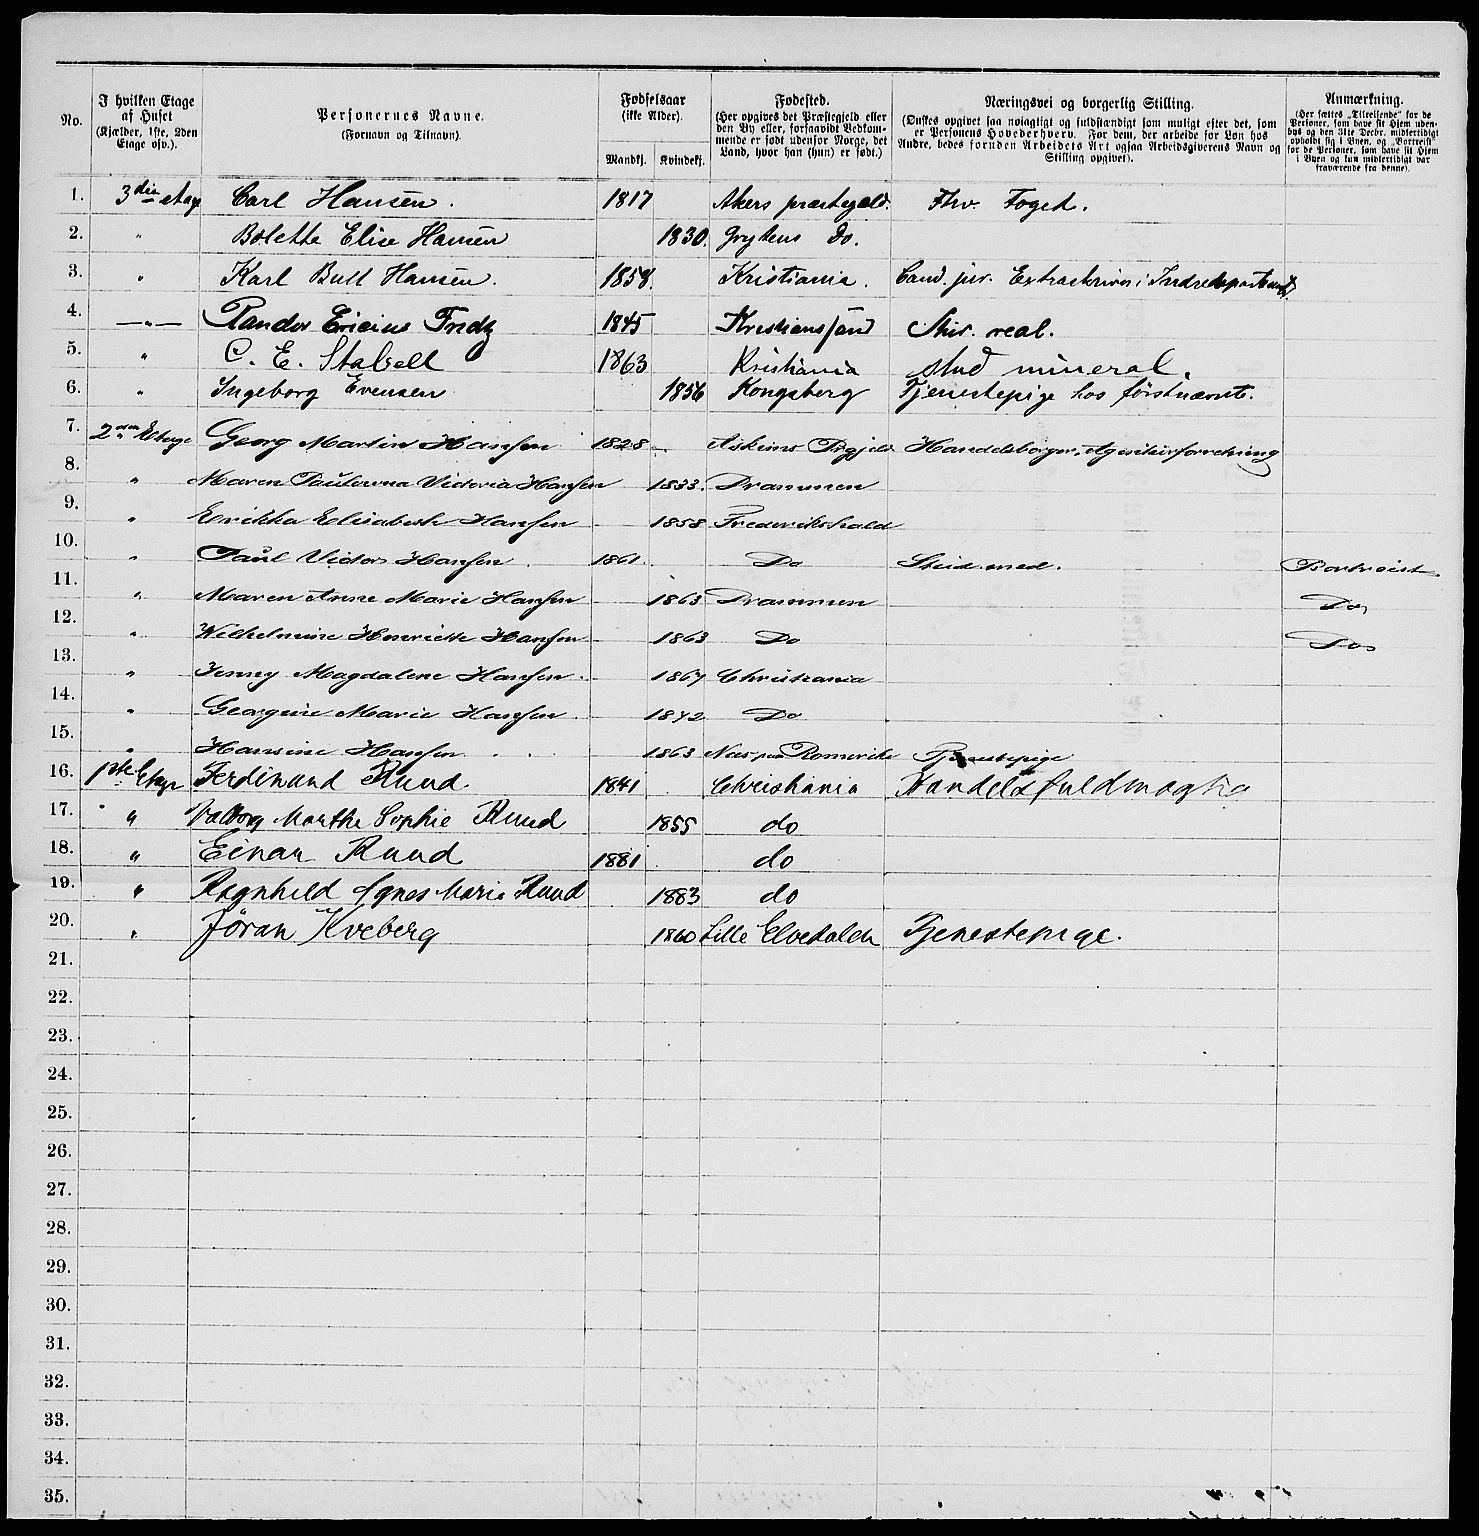 No. I hvilken Etage af Huset (Kjælder, 1ste, 2den Etage osv.). Personernes Navne. (Fornavn og Tilnavn). Fødselsaar (ikke Alder). Mandkj. Kvindekj. Fødested. (Her opgives det Præstegjeld eller den By eller, forsaavidt Vedkommende er født udenfor Norge, det Land, hvor han (hun) er født.) Næringsvei og borgerlig Stilling. (Ønskes opgivet saa nøiagtigt og fuldstændigt som muligt efter det, som er Personens Hovederhverv. For dem, der arbeide for Løn hos Andre, bedes foruden Arbeidets Art ogsaa Arbeidsgiverens Navn og Stilling opgivet). Anmærkning. (Her sættes „Tilreisende" for de Personer, som have sit Hjem udenbys og den 31te Decbr. midlertidigt opholdt sig i Byen, og „Bortreist" for de Personer, som have sit Hjem i Byen og kun midlertidigt var fraværende fra denne).
1. 3die etage Carl Hansen. 1817 Akers præstegæld. Fhv. Foged.
2. " Bolette Elise Hansen 1830. Grytens Do.
3. " Karl Bull Hansen. 1858. Kristiania. Cand. jur. Extraskriver i Indredepartementet
4. —"— Randor Ericius Fridz 1845 Kristianssand Stud. real.
5. " C. E. Stalsell 1863 Kristiania stud mineral.
6. " Ingeborg Evensen 1856 Kongsberg Tjenestepige hos førstnævnte.
7. 2den Etage Georg Martin Hansen 1828 Askims Prgjeld Handelsborger, Agenturforretning
8. " Maren Paulowna Victoria Hansen 1833. Drammen
9. " Erikka Elisabeth Hansen 1858 Frederikshald
10. " Paul Victor Hansen 1861 Do Stud. med. Bortreist
11. " Maren Anne Marie Hansen 1863 Drammen Do
12. " Wilhelmine Henriette Hansen 1863 Do Do
13. " Jenny Magdalene Hansen. 1867 Christiania
14. " Georgine Marie Hansen. 1842 Do
15. " Hansine Hansen 1863 Nes paa Romerike Tjenestepige
16. 1ste Etage Ferdinand Ruud 1841 Christiania Handelsfuldmægtig
17. " Valborg Marthe Sophie Ruud 1855 do
18. " Einar Ruud 1881 do
19. " Ragnhild Agnes Marie Ruud 1883 do
20. " Jøran Kveberg 1860 Lille Elvedalen Tjenestepige.
21.
22.
23.
24.
25.
26.
27.
28.
29.
30.
31.
32.
33.
34.
35.